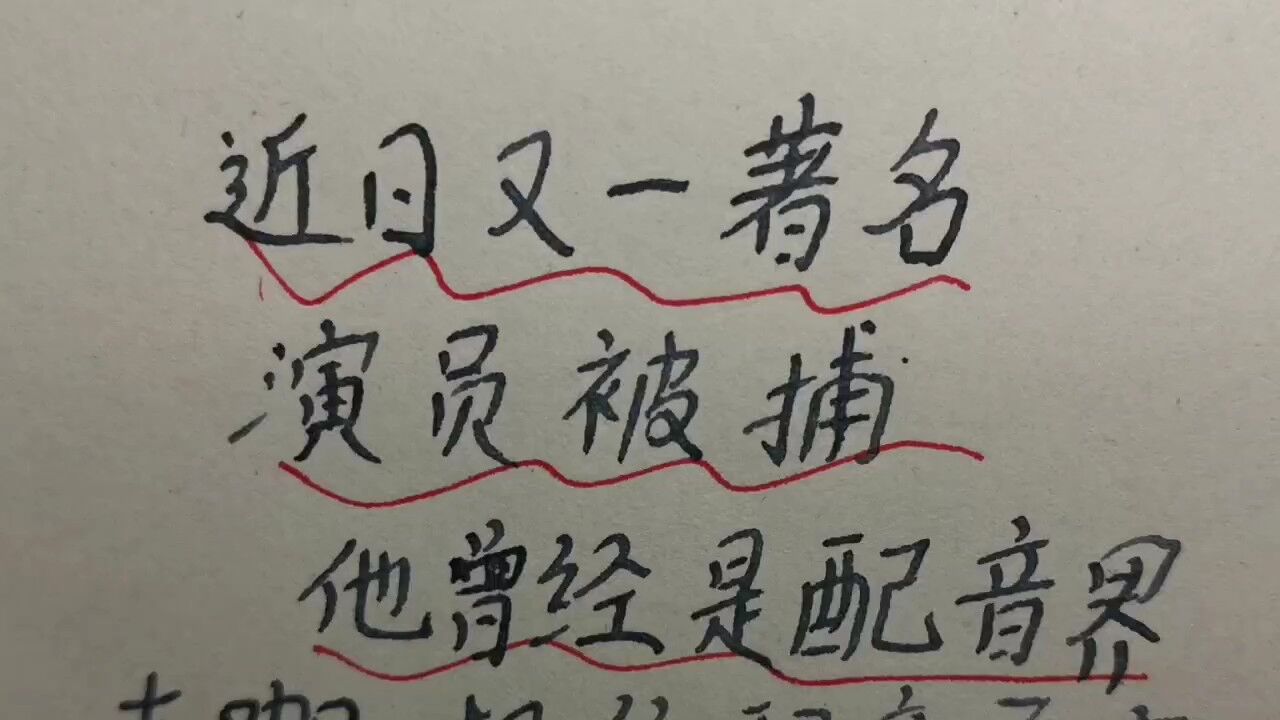 近日又一著名
演员被捕
他曾经是配音界